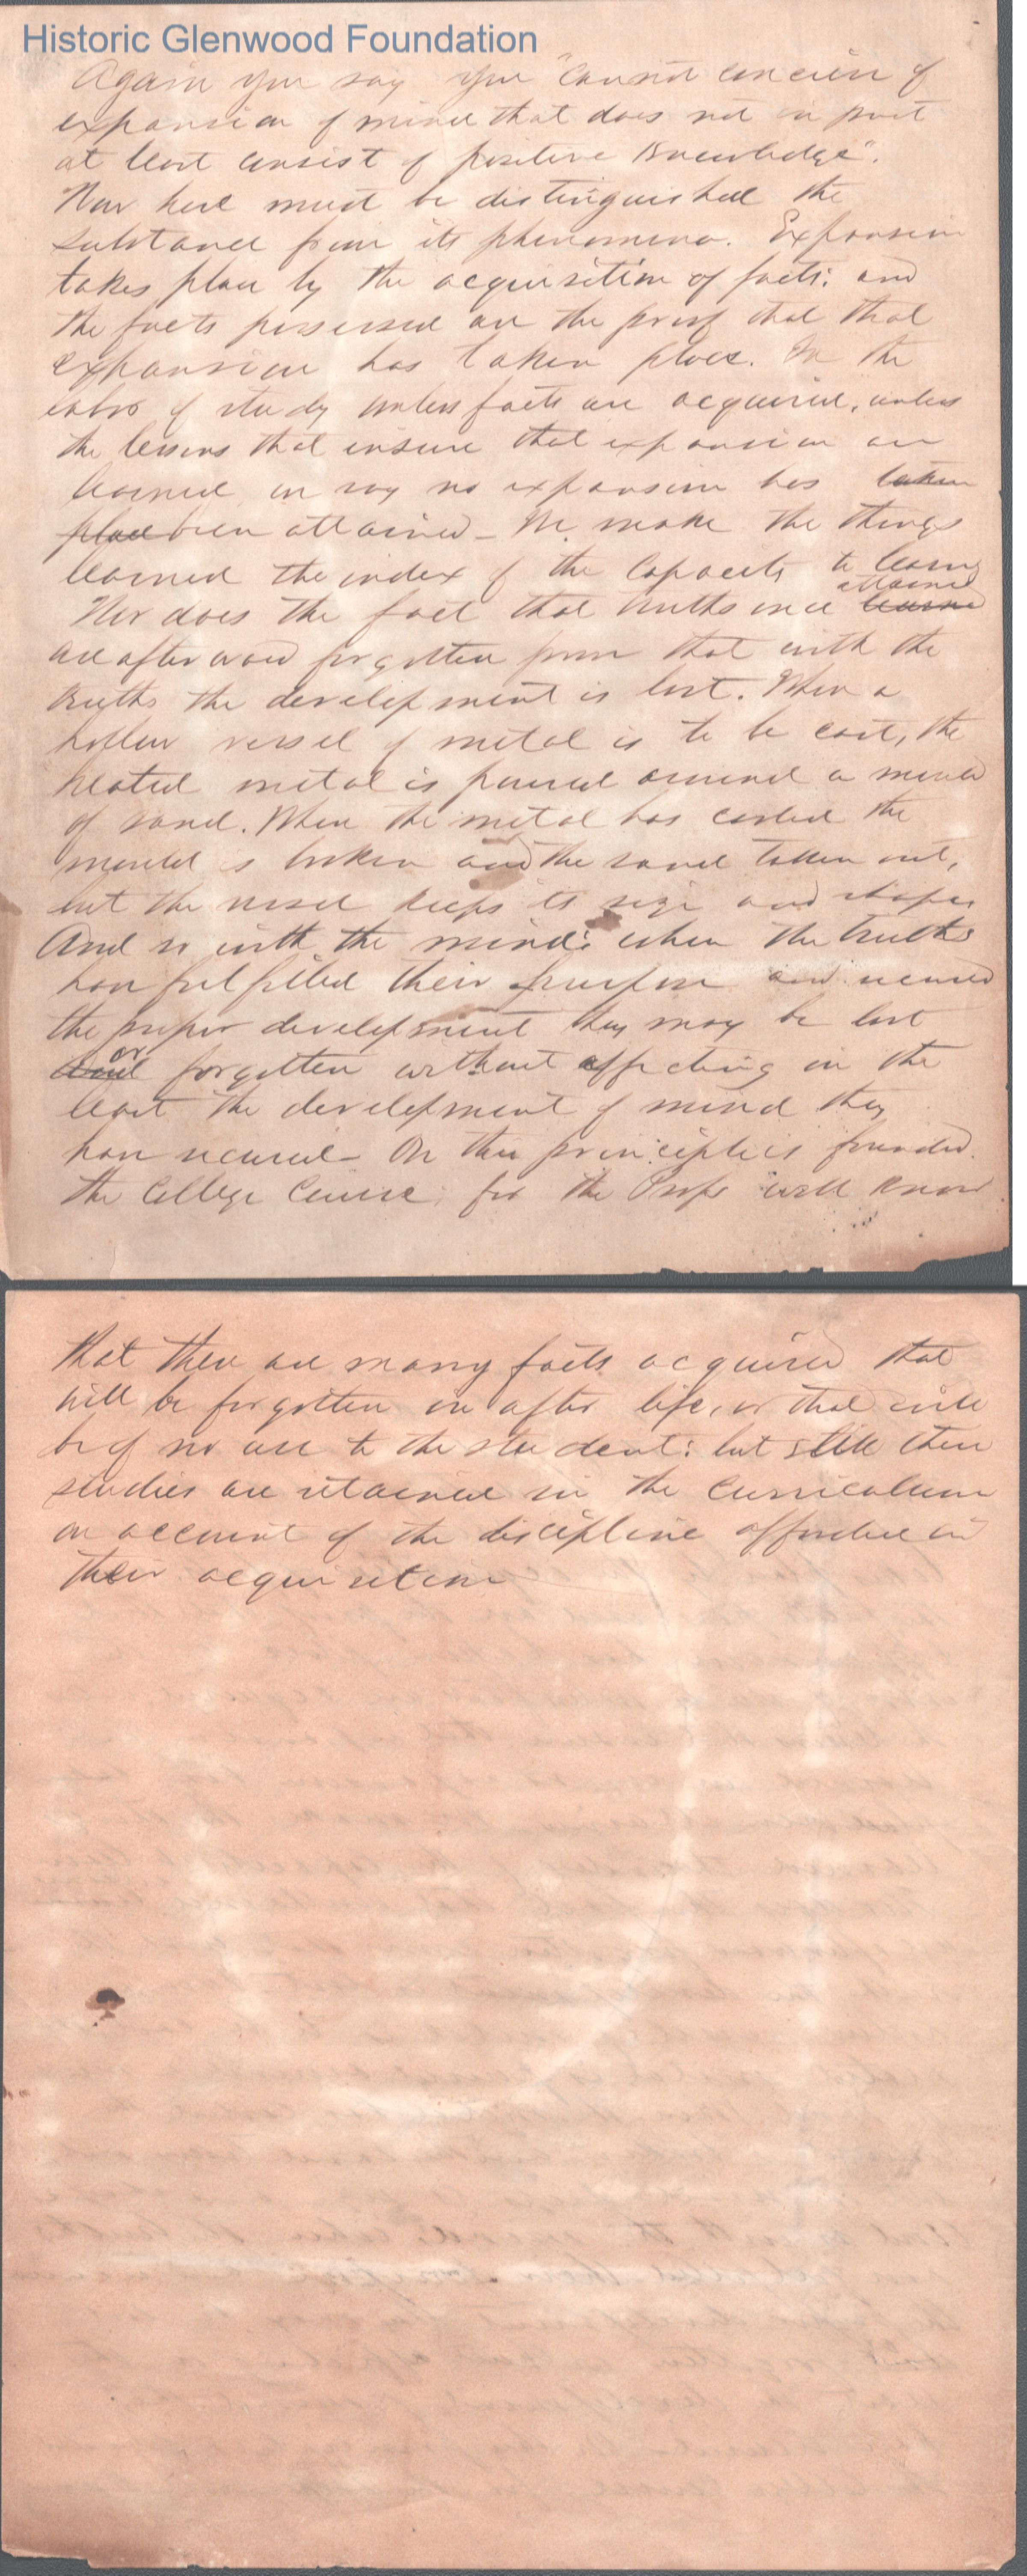 Historic Glenwood Foundation
Again you say you "cannot conceive of
expansion of mind that does not in part
at least consist of positive Knowledge".
Now here must be distinguished the
substance from its phenomena. Expansion
takes place by the acquisition of facts: and
the facts possessed are the proof that that
expansion has taken place. In the
labor of study unless facts are acquired, unless
the lessons that insure that expansion are
learned we say no expansion has taken
place been attained - We make the things
learned the index of the capacity to learn
attained
Nor does the fact that truths once learned
are afterward forgotten prove that with the
truths the development is lost. When a
hollow vessel of metal is to be cast, the
heated metal is poured around a mould
of sand. When the metal has cooled the
mould is broken and the sand taken out,
but the vessel keeps its size and shape.
And so with the mind: when the truths
have fulfilled their purpose and secured
the proper development they may be lost
or
and forgotten without affecting in the
least the development of mind they
have secured - On this principle is founded
the College Course: for the Profs well know
that there are many facts acquired that
will be forgotten in after life, or that will
be of no use to the student: but still these
studies are retained in the curriculum
on account of the discipline afforded in
their acquisition